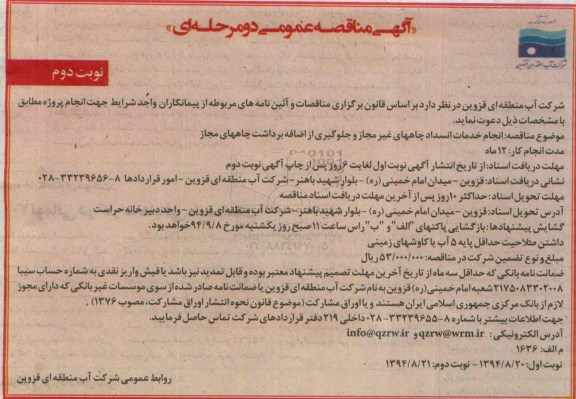 «آگهی مناقصه عمومی دو مرحله‌ای»
شرکت آب منطقه ای قزوین
نوبت دوم
شرکت آب منطقه ای قزوین در نظر دارد بر اساس قانون برگزاری مناقصات و آئین نامه های مربوطه از پیمانکاران واجد شرایط جهت انجام پروژه مطابق
با مشخصات ذیل دعوت نماید.
موضوع مناقصه: انجام خدمات انسداد چاههای غیر مجاز و جلوگیری از اضافه برداشت چاههای مجاز
مدت انجام کار: ۱۲ ماه
مهلت دریافت اسناد: از تاریخ انتشار آگهی نوبت اول لغایت ۶ روز پس از چاپ آگهی نوبت دوم
نشانی دریافت اسناد: قزوین – میدان امام خمینی (ره) – بلوار شهید باهنر – شرکت آب منطقه ای قزوین – امور قراردادها ۸-۳۳۲۳۹۶۵۶-۰۲۸
مهلت تحویل اسناد: حداکثر ۱۰ روز پس از آخرین مهلت دریافت اسناد مناقصه
آدرس تحویل اسناد: قزوین – میدان امام خمینی (ره) – بلوار شهید باهنر – شرکت آب منطقه ای قزوین – واحد دبیر خانه حراست
گشایش پیشنهادها: بازگشایی پاکتهای "الف" و "ب" راس ساعت ۱۱ صبح روز یکشنبه مورخ ۹۴/۹/۸ خواهد بود.
داشتن صلاحیت حداقل پایه ۵ آب یا کاوشهای زمینی
مبلغ و نوع تضمین شرکت در مناقصه: ۵۳/۰۰۰/۰۰۰ ریال
ضمانت نامه بانکی که حداقل سه ماه از تاریخ آخرین مهلت تصمیم پیشنهاد معتبر بوده و قابل تمدید نیز باشد یا فیش واریز نقدی به شماره حساب سیبا
۲۱۷۵۰۸۳۳۰۲۰۰۸ شعبه امام خمینی (ره) قزوین به نام شرکت آب منطقه ای قزوین یا ضمانت نامه صادر شده از سوی موسسات غیر بانکی که دارای مجوز
لازم از بانک مرکزی جمهوری اسلامی ایران هستند و یا اوراق مشارکت (موضوع قانون نحوه انتشار اوراق مشارکت، مصوب ۱۳۷۶) .
جهت اطلاعات بیشتر با شماره ۸-۳۳۲۳۹۶۵۵-۰۲۸ داخلی ۲۱۹ دفتر قراردادهای شرکت تماس حاصل فرمایید.
آدرس الکترونیکی: qzrw@wrm.ir و info@qzrw.ir
م الف: ۱۶۳۶
نوبت اول: ۱۳۹۴/۸/۲۰ – نوبت دوم: ۱۳۹۴/۸/۲۱
روابط عمومی شرکت آب منطقه ای قزوین